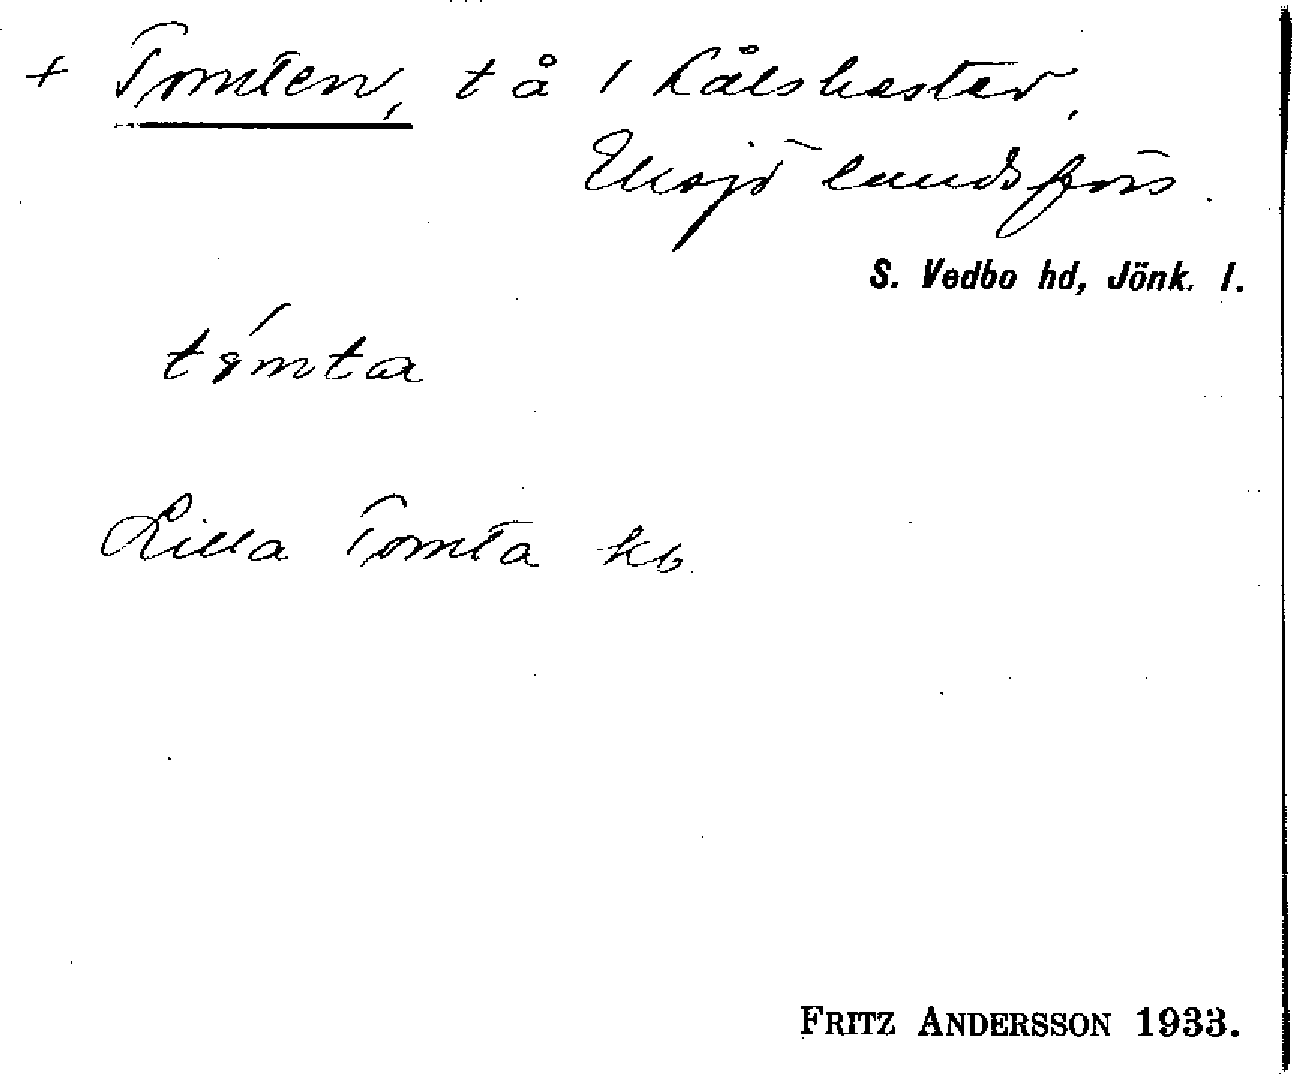 + Tomten, tå 1 Kålshester,
Eksjö landsförs.
S. Vedbo hd, Jönk. l.
tómta
Lilla Tomta kb.
FRITZ ANDERSSON 1933.